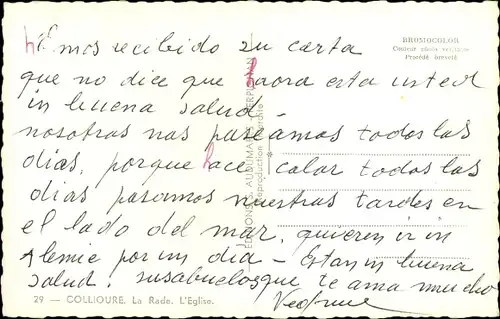 hEmos recibido su carta
que no dice que haora esta usted
in buena salud!
nosotras nas paséamos todos las
dias, porque hace calar todos las
dias pasamos nuestras tardes en
el lado del mar, quieren ir in
Alemie por un dia - Estan in buena
salud! susabuelos que te ama mucho
BROMOCOLOR
Procédé breveté
29 - COLLIOURE. La Rade. L'Eglise.